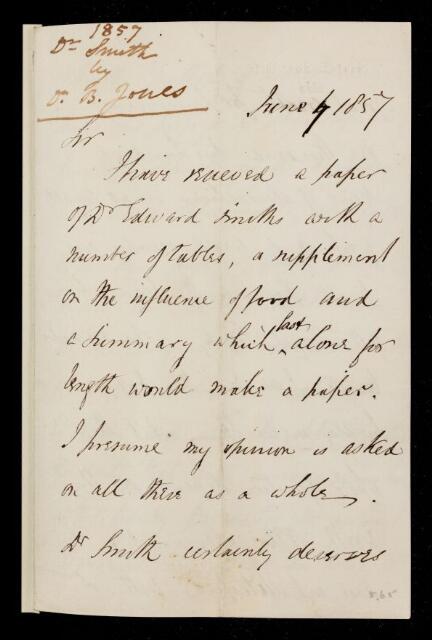 1857
Dr Smith
by
Dr B. Jones
June 4 1857
Sir
I have received a paper
of Dr Edward Smiths with a
number of tables, a supplement
on the influence of food and
a summary which last alone for
length would make a paper.
I presume my opinion is asked
on all these as a whole.
Dr Smith certainly deserves